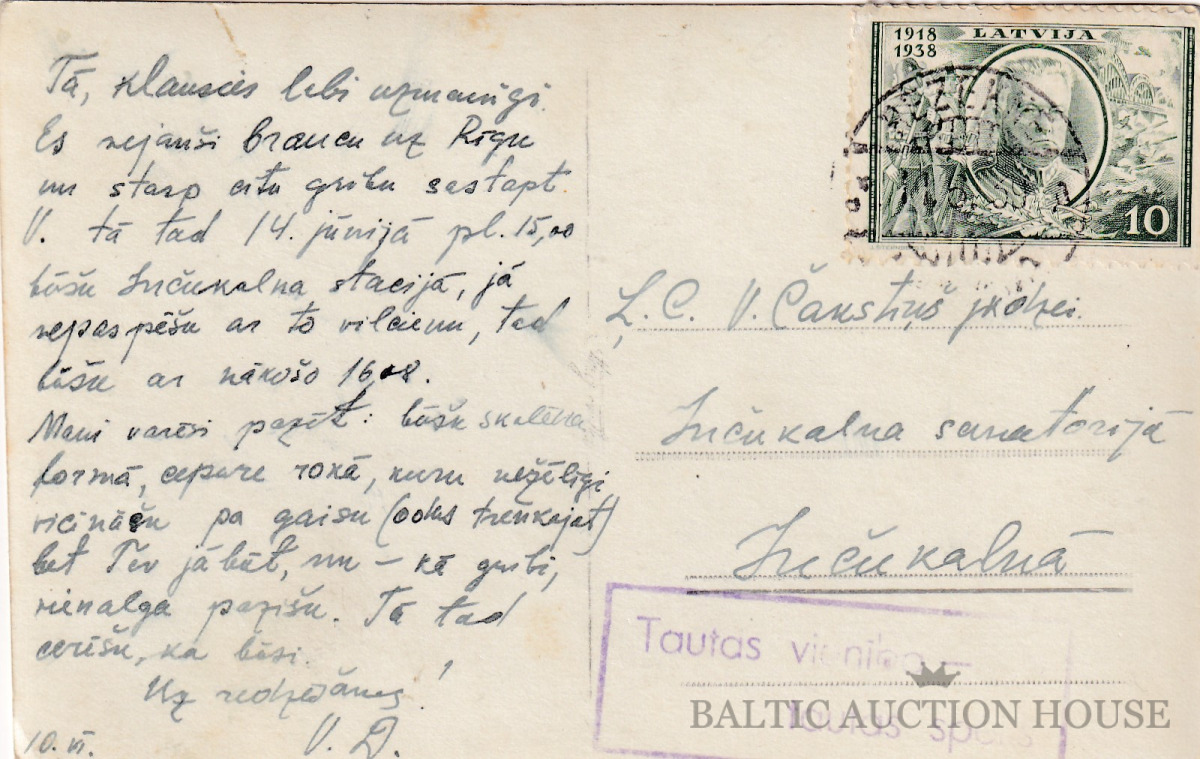 Tā, klausies labi uzmanīgi.
Es nejauši braucu uz Rīgu
un starp citu gribu sastapt
V. tā tad 14. jūnijā pl. 15,00
būšu Inčukalna stacijā, ja
nepaspēšu ar to vilcienu, tad
būšu ar nākošo 16,08.
Mani varēsi pazīt: būšu skolēna
formā, cepure rokā, kuru nežēlīgi
vicināšu pa gaisu (odus trenkājot)
bet Tev jābūt, nu – kā gribi,
vienalga pazīšu. Tā tad
cerēšu, ka būsi.
Uz redzēšanos!
V. D.
10. VI.
1918 LATVIJA
1938
10
Ļ. C. V. Čakstiņš jkdzei.
Inčukalna sanatorijā
Inčukalnā
Tautas vienība –
tautas spēks
BALTIC AUCTION HOUSE